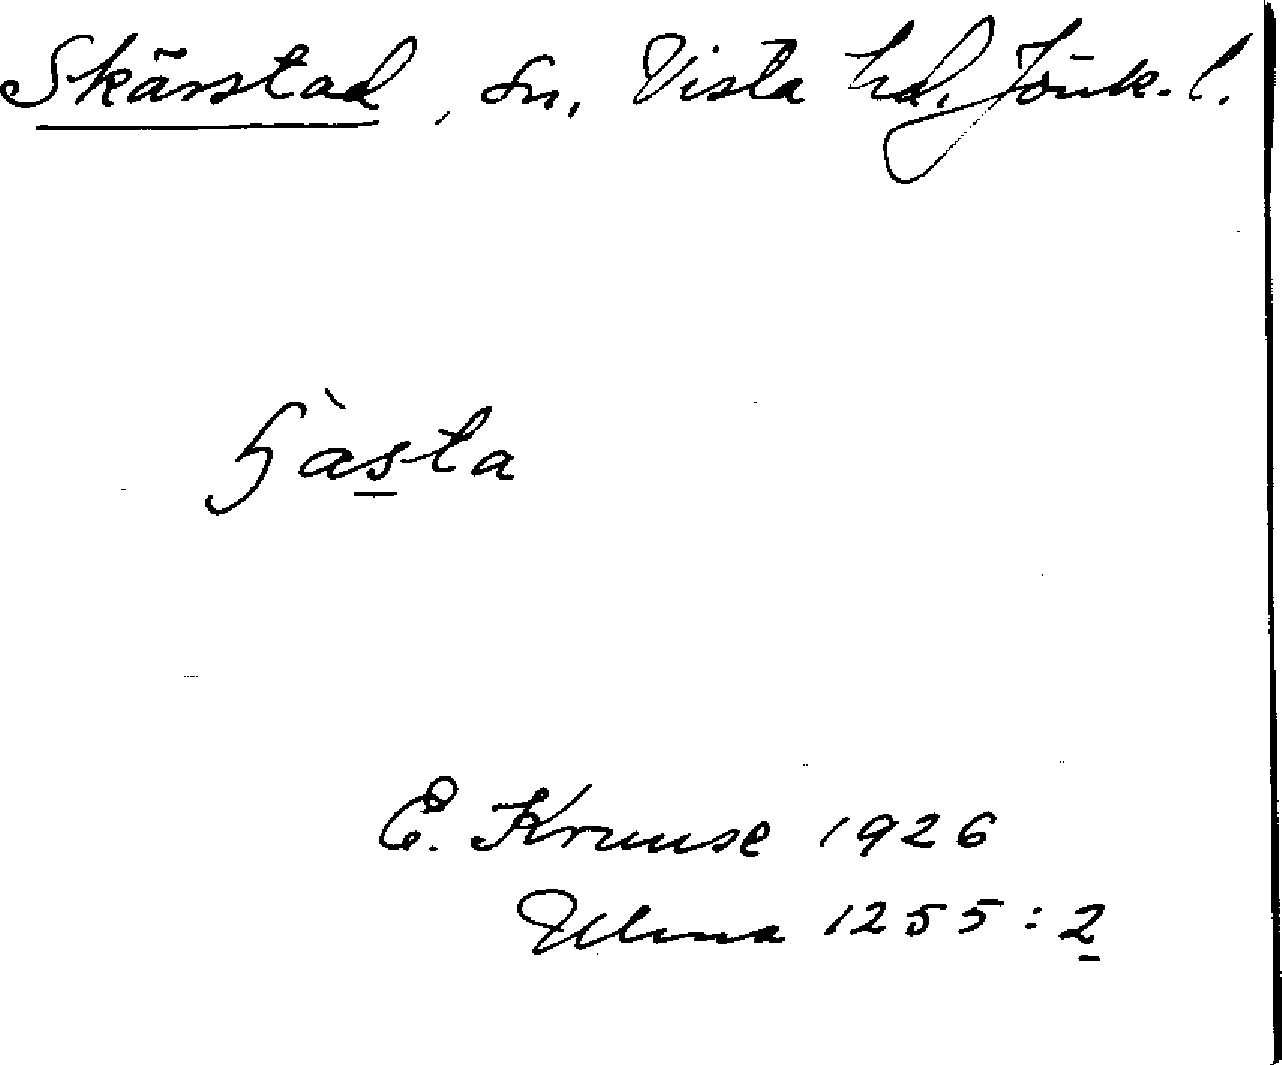 Skärstad, sn, Vista hd, Jönk. l.
ʃàs̲ta
E. Kruuse 1926
Ulma 1255:2